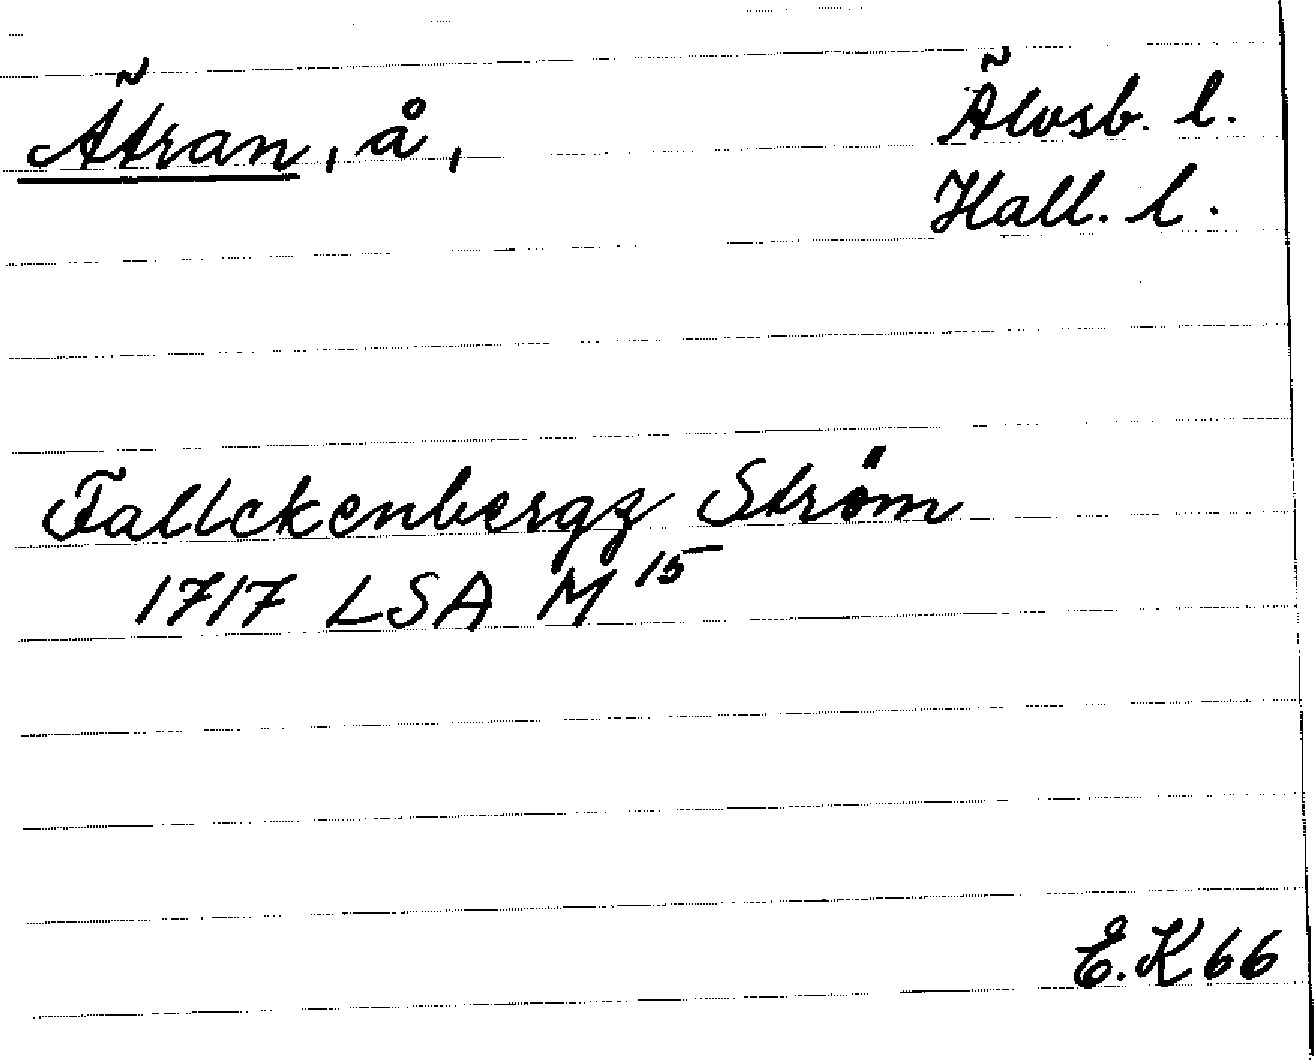 Ätran, å, Älvsb. l.
Hall. l.
Fallckenbergz Ström
1717 LSA M 15
E.K 66